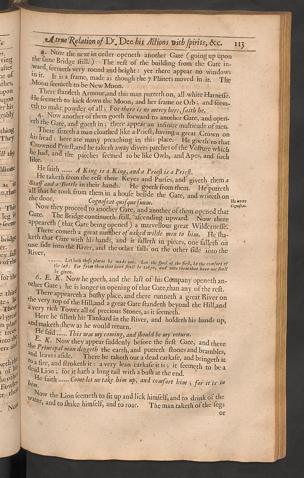 A true Relation of Dr. Dee his Actions with spirits, &c. 113
2. Now the next in order openeth another Gate (going up upon
the same Bridge still.) The rest of the building from the Gate in-
ward, seemeth very round and bright: yet there appear no windows
in it. It is a frame, made as though the 7 Planets moved in it. The
Moon seemeth to be New Moon.
There standeth Armour, and this man putteth on, all white Harnesse.
He seemeth to kick down the Moon, and her frame or Orb; and seem-
eth to make powder of all: For there is no mercy here, saith he.
4. Now another of them goeth forward to another Gate, and open-
eth the Gate, and goeth in: there appear an infinite multitude of men.
There sitteth a man cloathed like a Priest, having a great Crown on
his head: here are many preaching in this place. He goeth to that
Crowned Priest, and he taketh away divers patches of the Vesture which
he had, and the patches seemed to be like Owls, and Apes, and such
like.
He saith ..... A King is a King, and a Priest is a Priest.
He taketh from the rest their Keyes and Purses, and giveth them a
Staff and a Bottle in their hands. He goeth from them. He putteth
all that he took from them in a house beside the Gate, and writeth on
the door, Cognoscat quisque suum.
Now they proceed to another Gate, and another of them opened that
Gate. The Bridge continueth still, ascending upward. Now there
appeareth (that Gate being opened) a marvellous great Wildernesse.
There cometh a great number of naked wilde men to him. He sha-
keth that Gate with his hands, and it falleth in pieces, one falleth on
one side into the River, and the other falls on the other side into the
River,
6. E. K. Now he goeth, and the last of his Company openeth an-
other Gate; he is longer in opening of that Gate, than any of the rest.
There appeareth a bushy place, and there runneth a great River on
the very top of the Hill, and a great Gate standeth beyond the Hill, and
a very rich Tower all of precious Stones, as it seemeth.
Here he filleth his Tankard in the River, and holdeth his hands up,
and maketh shew as he would return.
He said ..... This was my coming, and should be my return.
E. K. Now they appear suddenly before the first Gate, and there
the Principal man diggeth the earth, and putteth stones and brambles,
and leaves aside. There he taketh out a dead carkase, and bringeth it
to a fire, and stroketh it: a very lean carkase it is; it seemeth to be a
dead Lion; for it hath a long tail with a bush at the end.
He saith ..... Come let us take him up, and comfort him; for it is in
him.
Now the Lion seemeth to sit up and lick himself, and to drink of the
water, and to shake himself, and to roar. The man taketh of the segs
or